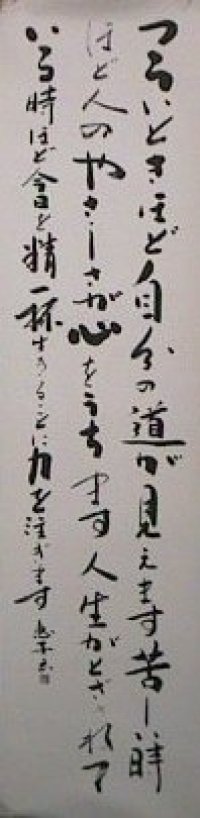 つらいときほど自分の道が見えます苦しい時
ほど人のやさしさが心をうちます人生がとざされて
いる時ほど今日を精一杯生きることに力を注ぎます